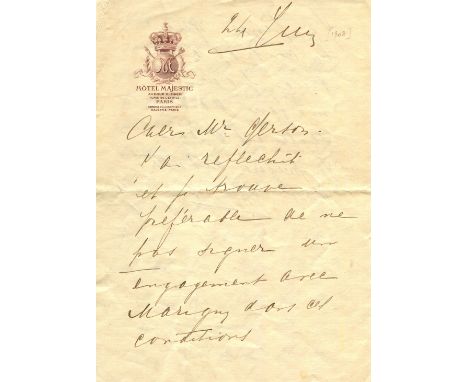 24 Juin [1908]
HÔTEL MAJESTIC
PARIS
Chers Mr Gerson.
J'ai reflechit
et je trouve
preférable de ne
pas signer un
engagement avec
Marigny dans ces
conditions